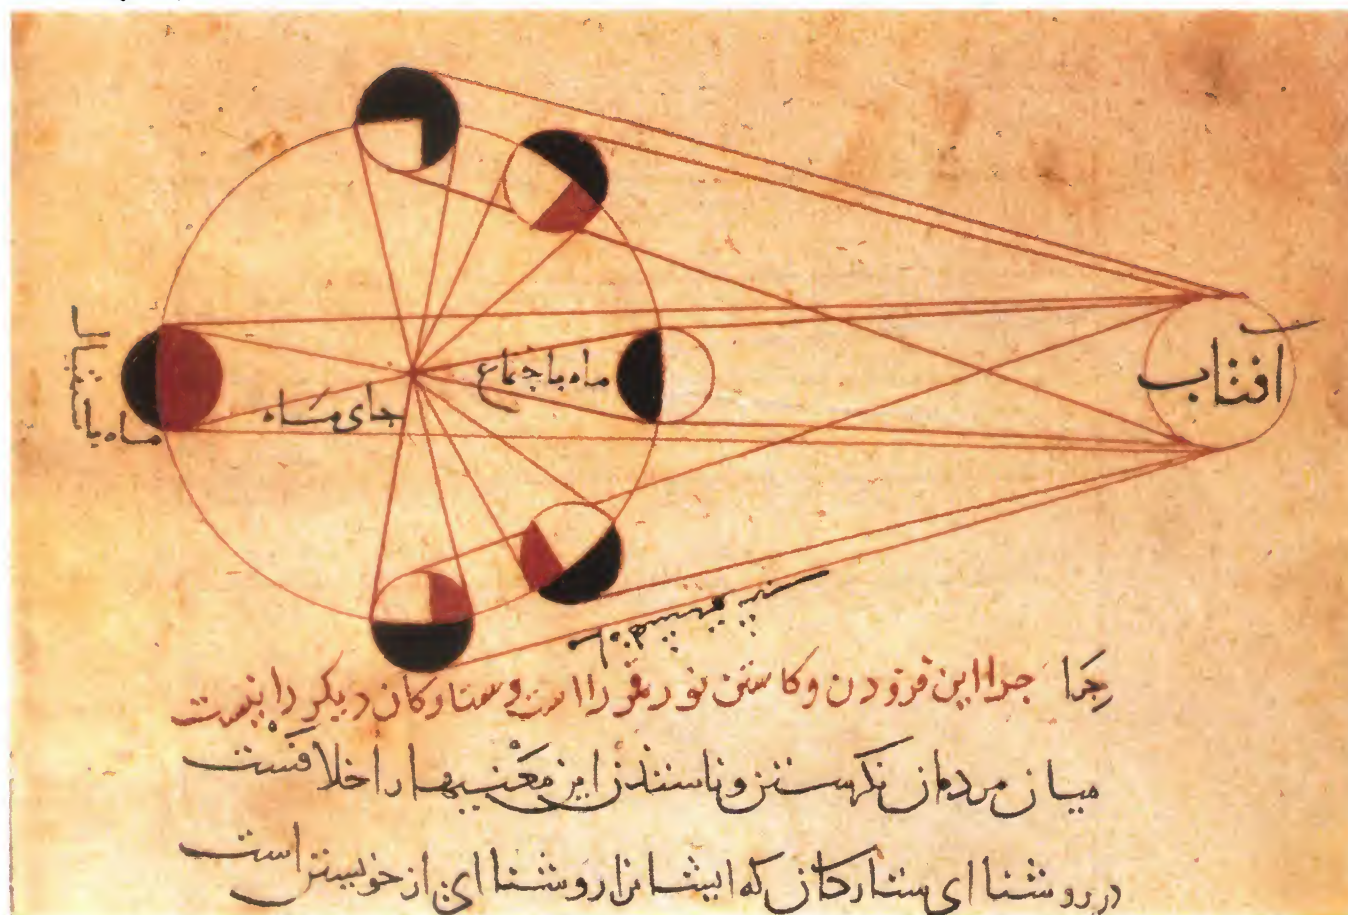 افتاب
ماه باجتماع
جای ماه
ماه باستقبال
چرا جرا این فزودن وکاستن نور قمر را است وستارکان دیکر را نیست
میان مردمان نکرستن و این معنیها را خلافست
در روشنا ای ستارکان که ایشانرا روشنا ای از خویشتن است